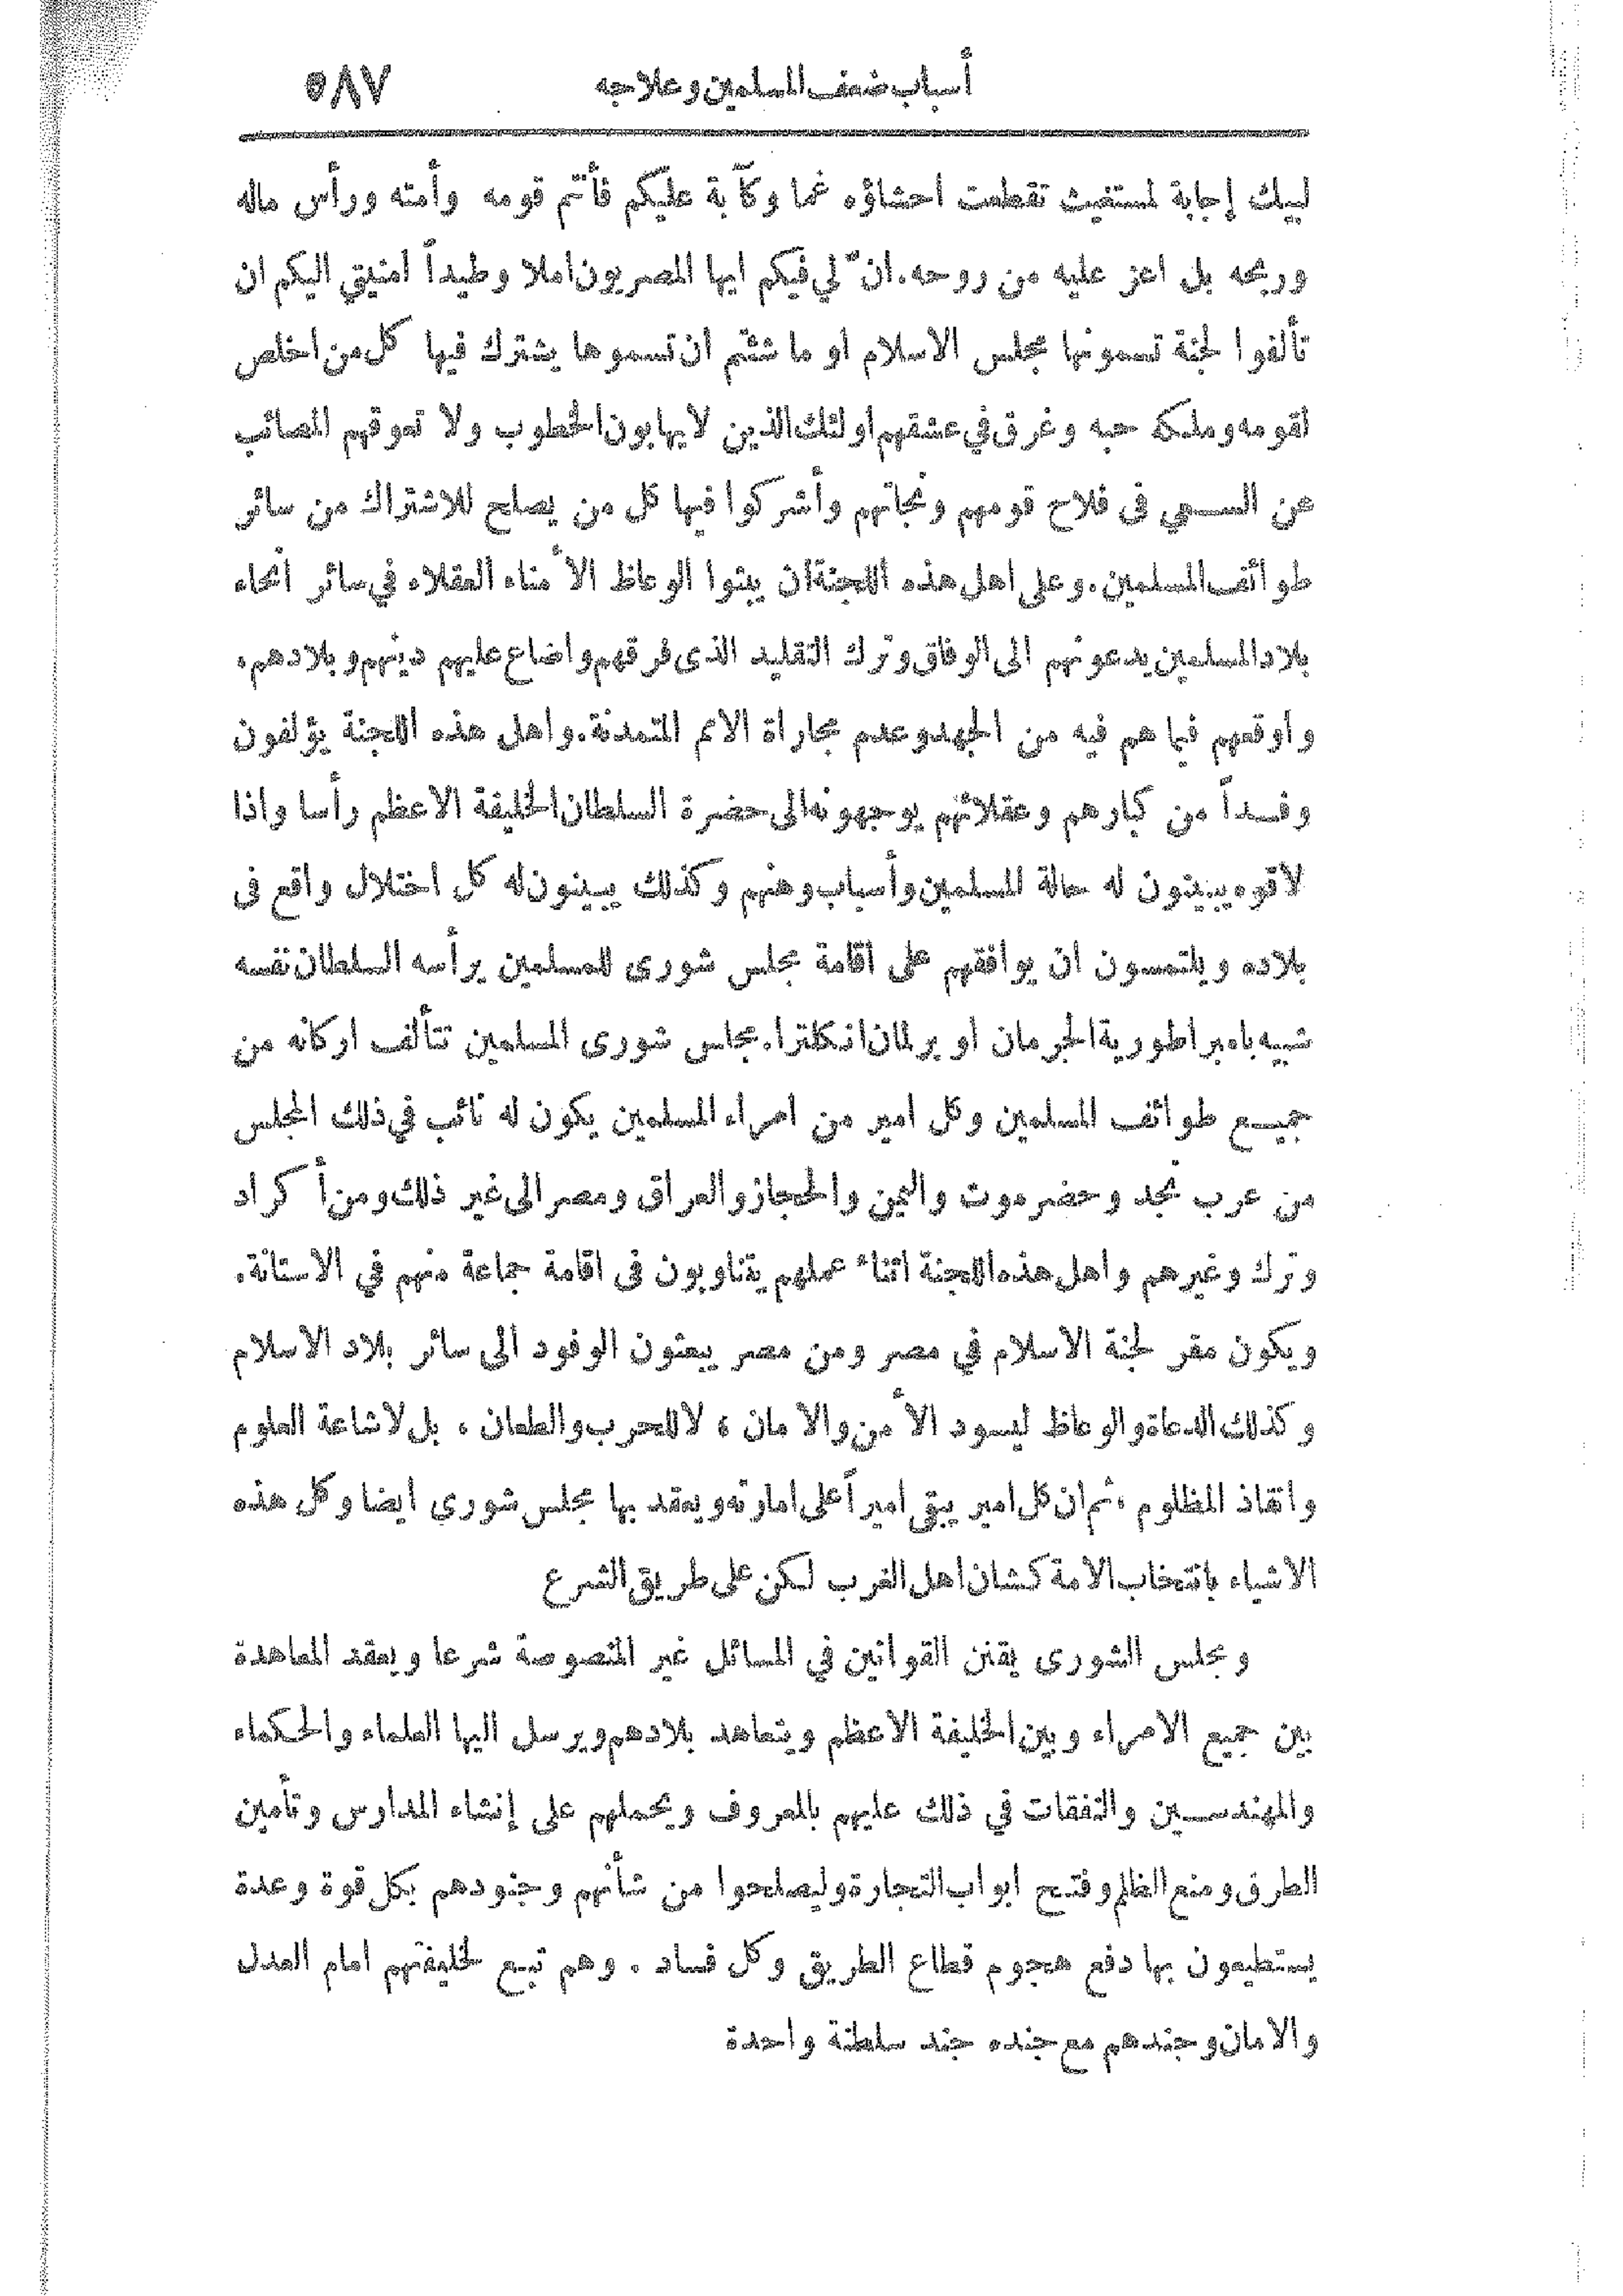 أسباب ضعف المسلمين وعلاجه ٥٨٧
لبيك إجابة لمستغيث تقطعت احشاؤه غما وكآبة عليكم فأنتم قومه وأمته ورأس ماله
وربحه بل اعز عليه من روحه. انّ لي فيكم ايها المصريون املا وطيداً امنيتي اليكم ان
تألفوا لجنة تسمونها مجلس الاسلام او ما شئتم ان تسموها يشترك فيها كل من اخلص
لقومه وملكه حبه وغرق في عشقهم اولئك الذين لا يهابون الخطوب ولا تعوقهم المصائب
عن السعي فى فلاح قومهم ونجاتهم وأشركوا فيها كل من يصلح للاشتراك من سائر
طوائف المسلمين. وعلى اهل هذه اللجنة ان يبثوا الوعاظ الأمناء العقلاء في سائر أنحاء
بلاد المسلمين يدعونهم الى الوفاق وترك التقليد الذى فرقهم واضاع عليهم دينهم وبلادهم.
واوقعهم فيما هم فيه من الجهد وعدم مجاراة الامم المتمدنة. واهل هذه اللجنة يؤلفون
وفداً من كبارهم وعقلائهم يوجهونه الى حضرة السلطان الخليفة الاعظم رأسا واذا
لاقوه يبينون له حالة المسلمين وأسباب وهنهم وكذلك يبينون له كل اختلال واقع فى
بلاده ويلتمسون ان يوافقهم على اقامة مجلس شورى للمسلمين يرأسه السلطان نفسه
شبيه بامبراطورية الجرمان او برلمان انكلترا. مجلس شورى المسلمين تتألف اركانه من
جميع طوائف المسلمين وكل امير من امراء المسلمين يكون له نائب في ذلك المجلس
من عرب نجد وحضرموت واليمن والحجاز والعراق ومصر الى غير ذلك ومن أكراد
وترك وغيرهم واهل هذه اللجنة اثناء عملهم يتناوبون فى اقامة جماعة منهم في الاستانة.
ويكون مقر لجنة الاسلام في مصر ومن مصر يبعثون الوفود الى سائر بلاد الاسلام
وكذلك الدعاة والوعاظ ليسود الأمن والامان ، لا للحرب والطعان ، بل لاشاعة العلوم
وانقاذ المظلوم ، ثم ان كل امير يبقى اميراً على امارته ويعقد بها مجلس شورى ايضا وكل هذه
الاشياء بانتخاب الامة كشان اهل الغرب لكن على طريق الشرع
ومجلس الشورى يقنن القوانين في المسائل غير المنصوصة شرعا ويعقد المعاهدة
بين جميع الامراء وبين الخليفة الاعظم ويتعاهد بلادهم ويرسل اليها العلماء والحكماء
والمهندسين والنفقات في ذلك عليهم بالمعروف ويحملهم على إنشاء المدارس وتأمين
الطرق ومنع الظلم وفتح ابواب التجارة وليصلحوا من شأنهم وجنودهم بكل قوة وعدة
يستطيعون بها دفع هجوم قطاع الطريق وكل فساد . وهم تبع لخليفتهم امام العدل
والامان وجندهم مع جنده جند سلطنة واحدة